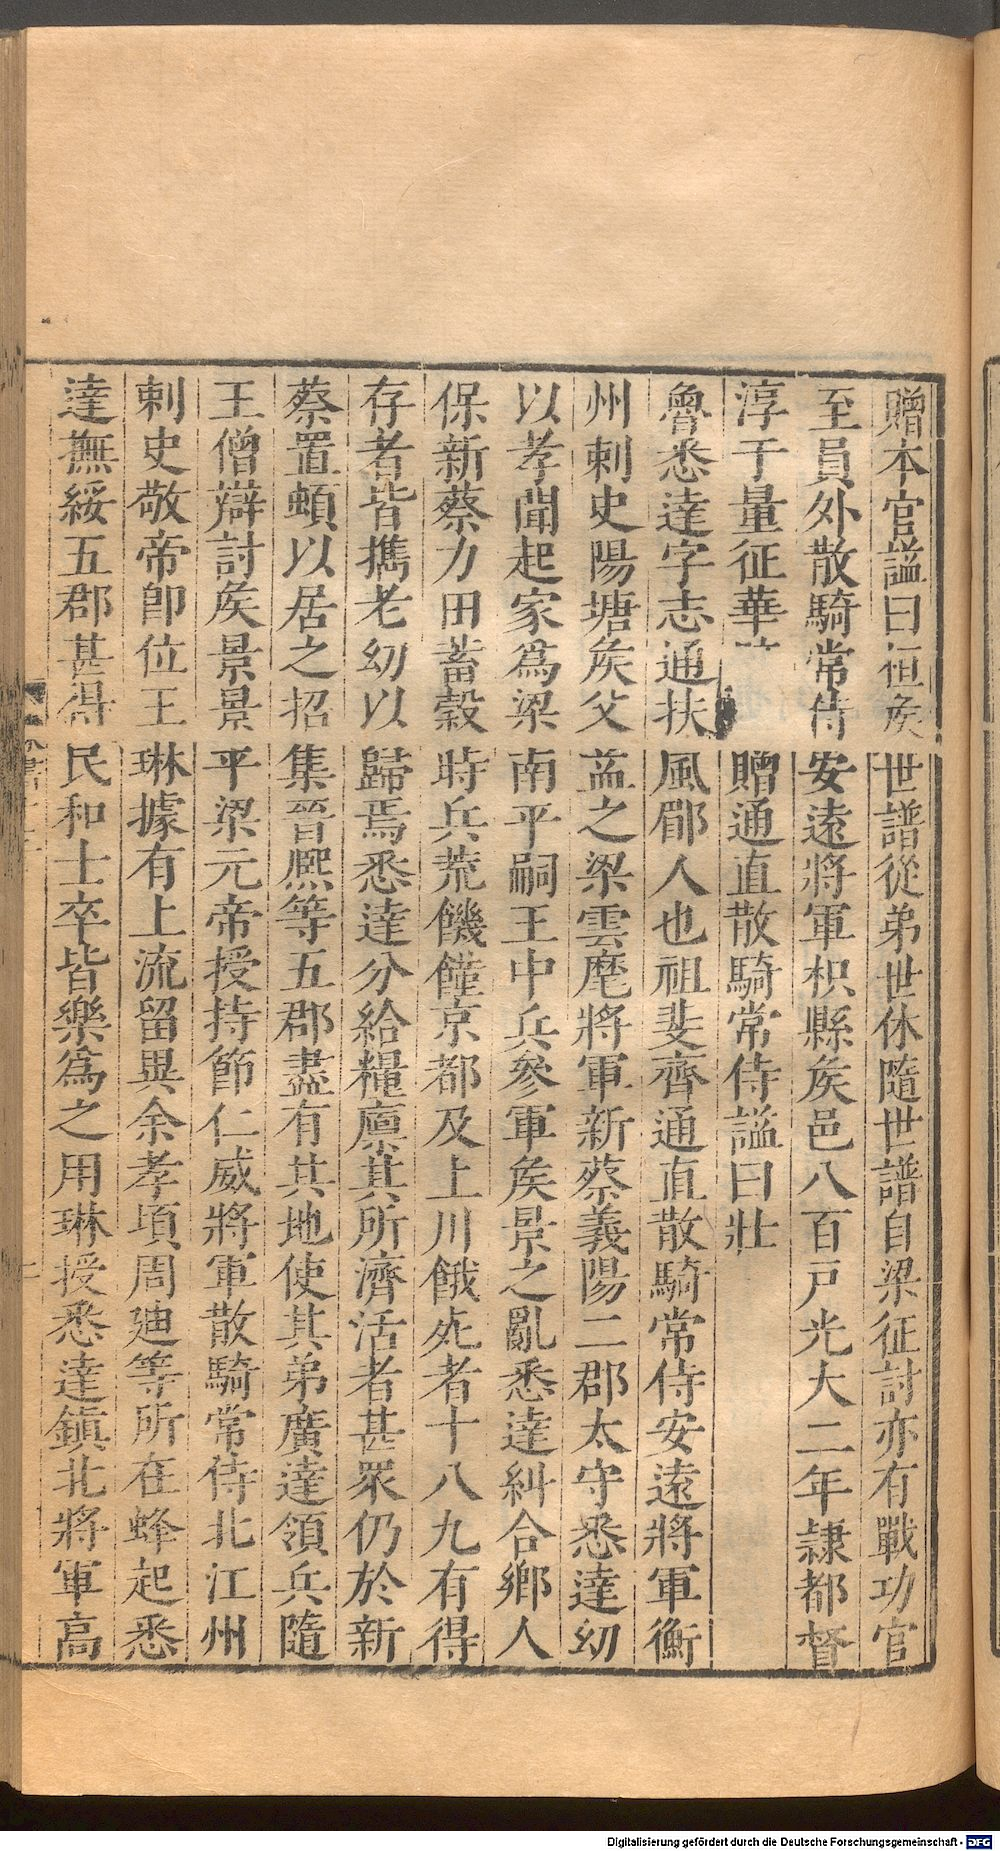 贈本官諡曰桓矦世譜從弟世休隨世譜自梁征討亦有戰功官
至員外散騎常侍安遠將軍枳縣矦邑八百戸光大二年隷都督
淳于量征華贈通直散騎常侍諡曰壯
魯悉達字志通扶風郿人也祖斐齊通直散騎常侍安遠將軍衡
州刺史陽塘矦父益之梁雲麾將軍新蔡義陽二郡太守悉達幼
以孝聞起家爲梁南平嗣王中兵參軍矦景之亂悉達糾合鄉人
保新蔡力田蓄穀時兵荒饑饉京都及上川餓死者十八九有得
存者皆攜老幼以歸焉悉達分給糧廪其所濟活者甚眾仍於新
蔡置頓以居之招集晉熙等五郡盡有其地使其弟廣達領兵隨
王僧辯討矦景景平梁元帝授持節仁威將軍散騎常侍北江州
刺史敬帝卽位王琳據有上流留異余孝頃周廸等所在蜂起悉
達撫綏五郡甚得民和士卒皆樂爲之用琳授悉達鎭北將軍高
Digitalisierung gefördert durch die Deutsche Forschungsgemeinschaft - DFG